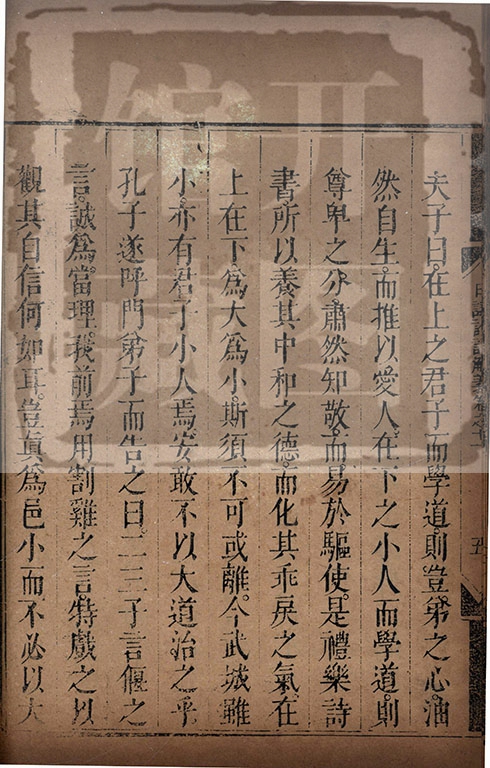 夫子曰。在上之君子而學道。則豈弟之心。油
然自生。而推以愛人。在下之小人而學道。則
尊卑之分。肅然知敬。而易於驅使。是禮樂詩
書所以養其中和之德。而化其乖戾之氣。在
上在下。為大為小。斯須不可或離。今武城雖
小。亦有君子小人焉。安敢不以大道治之乎
孔子遂呼門弟子而告之曰。二三子。言偃之
言。誠為當理。我前焉用割雞之言。特戲之以
觀其自信何如耳。豈真為邑小而不必以大